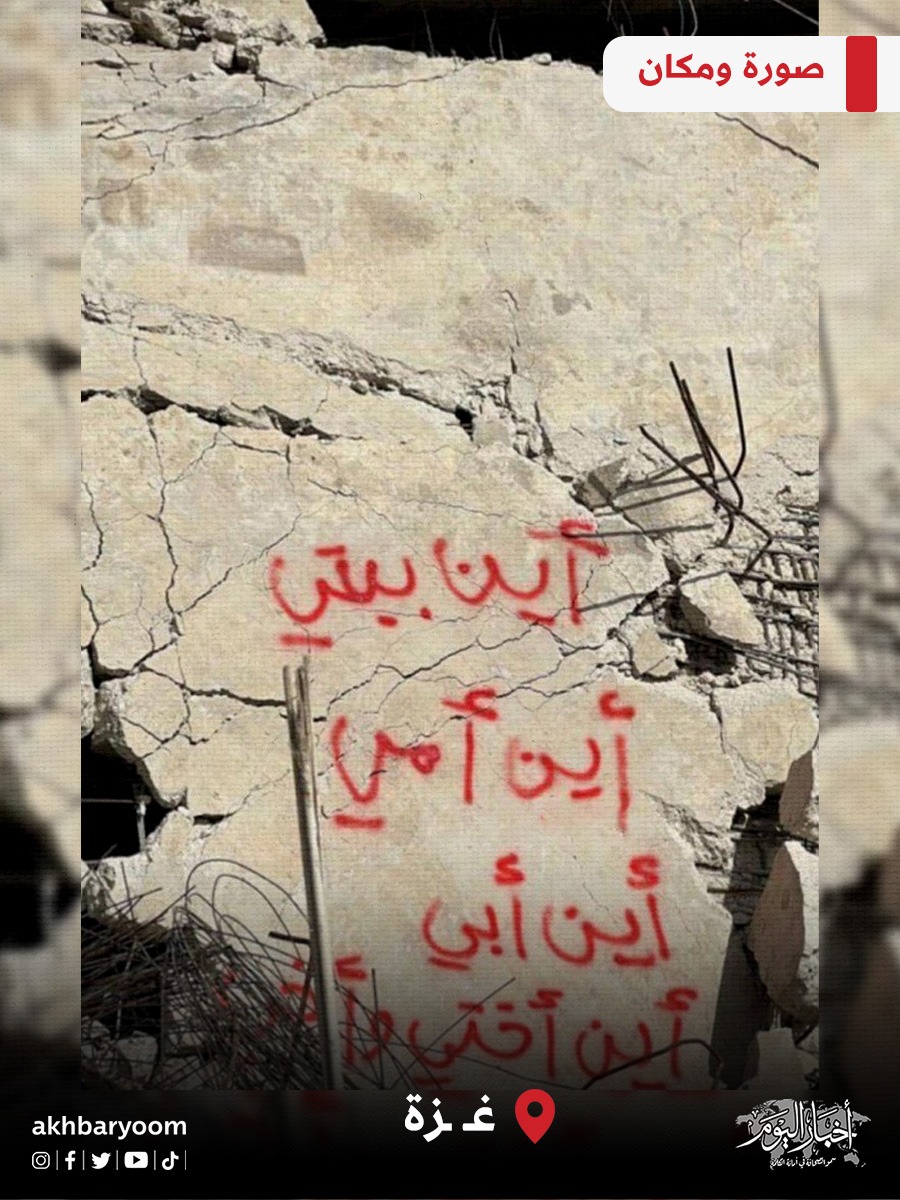 صورة ومكان
أين بيتي
أين أمي
أين أبي
أين أختي وأخي
غزة
akhbaryoom
أخبار اليوم